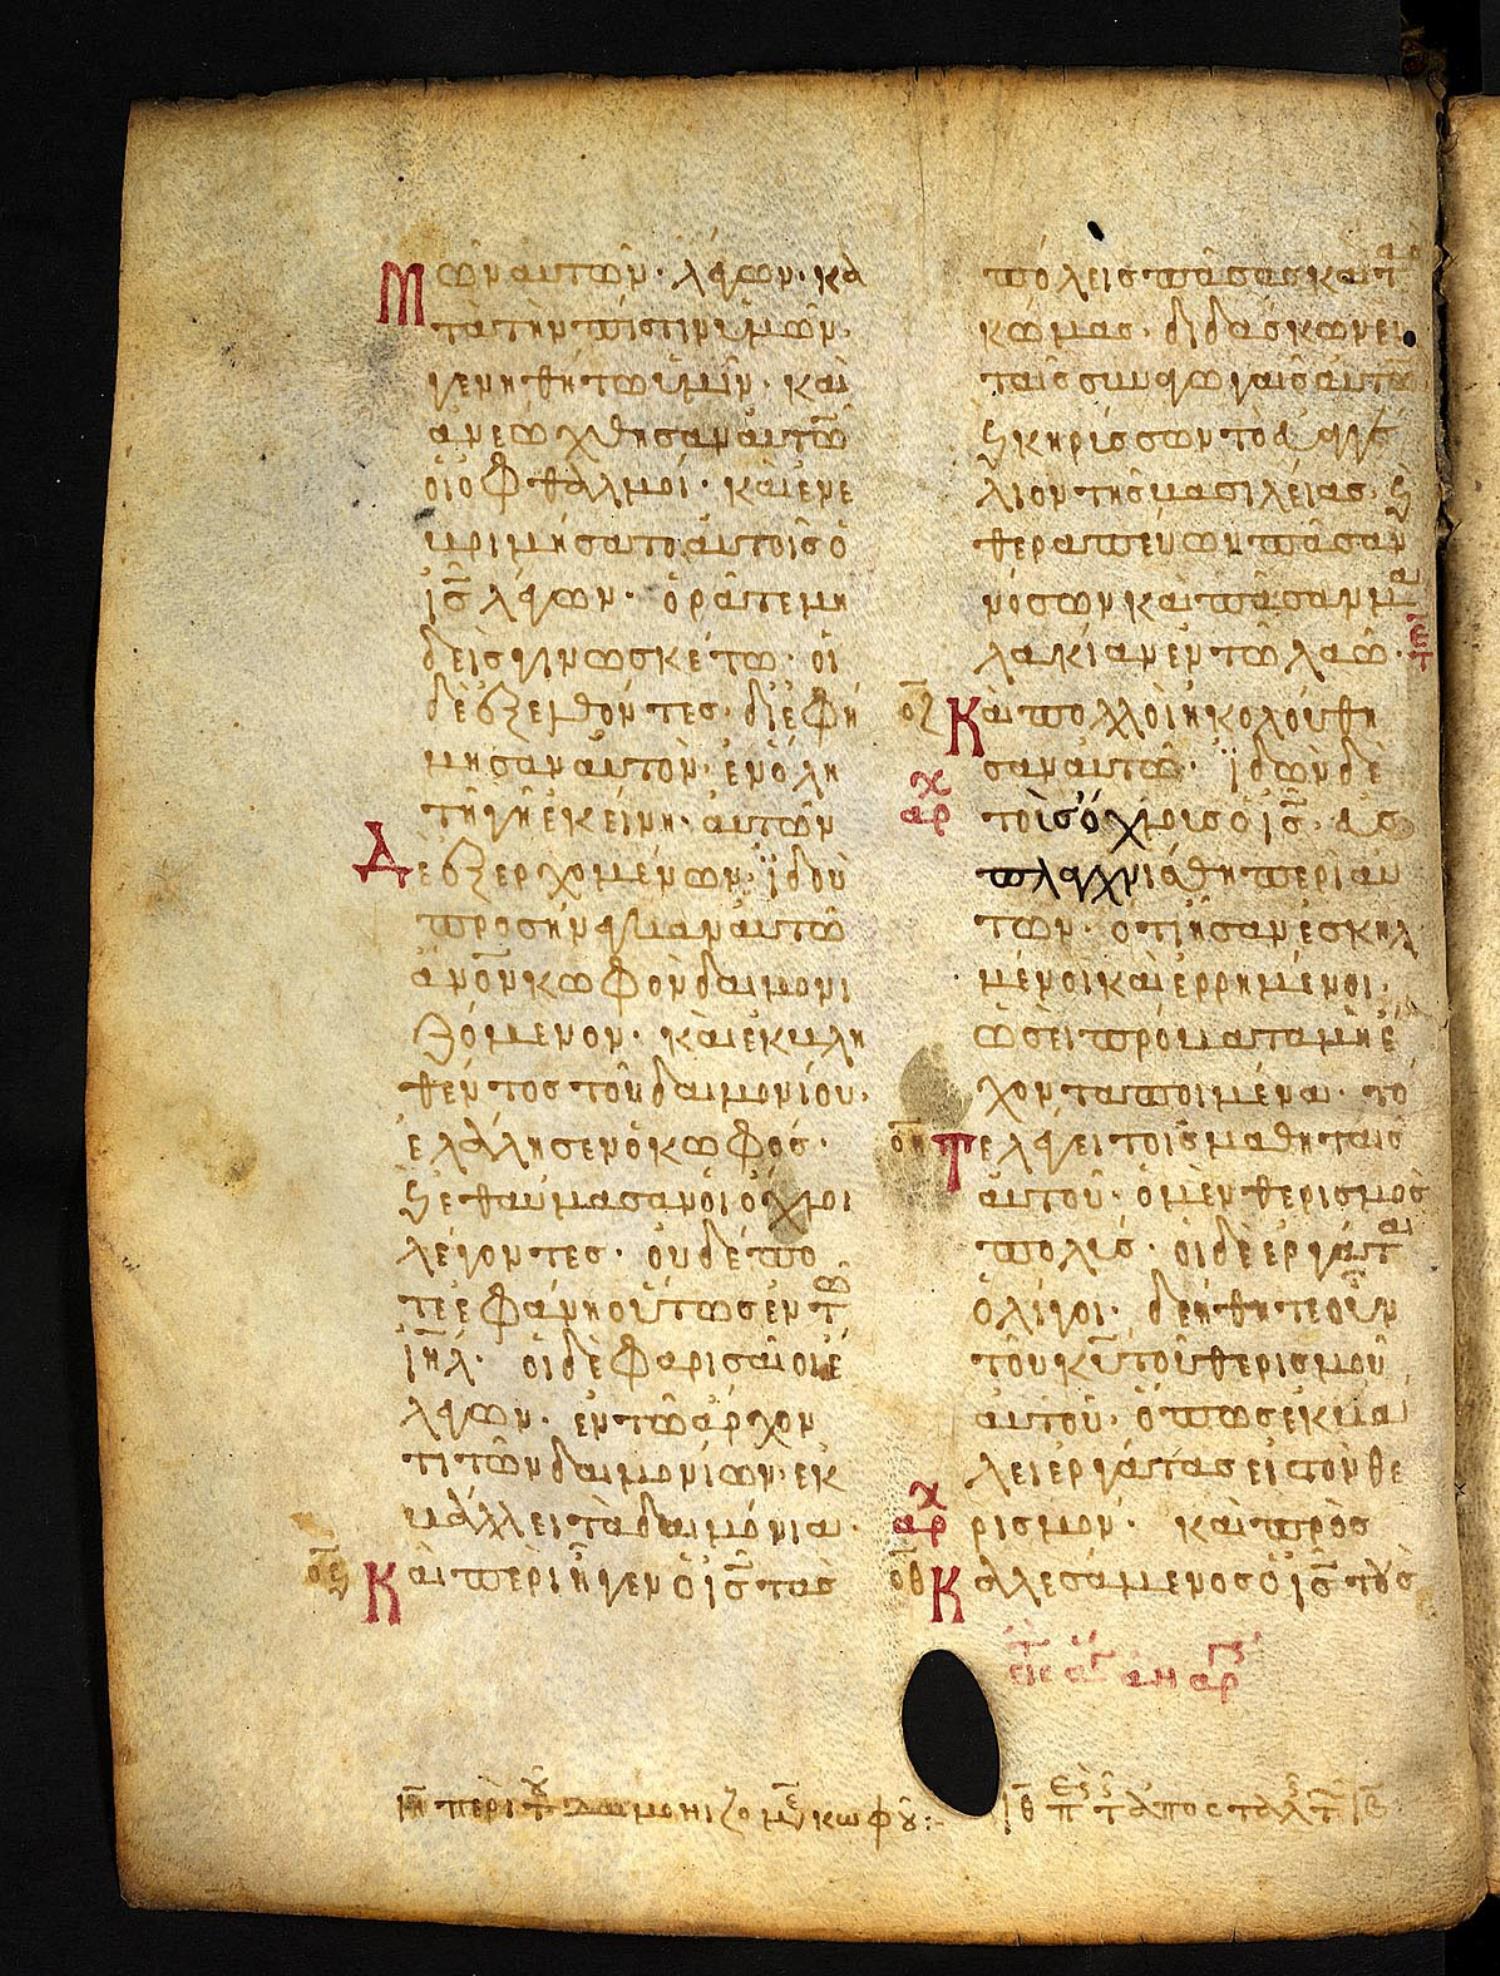 Μ ωῶν αυτῶν· λέγων· κα
τὰ τὴν πίστιν ὑμῶν·
γενηθήτω ὑμῖν· καὶ
ἀνεώχθησαν αὐτῶ̄
οἱ ὀφθαλμοί· καὶ ἐνε
βριμήσατο αὐτοῖς ὁ
ι̅ς̅ λέγων· ὁρᾶτε μη
δεὶς γινωσκέτω· οἱ
δὲ ἐξελθόντες· διεφή
μησαν αὐτὸν· ἐν ὅλη
τῆ γῆ ἐκείνη· αὐτῶν
Δὲ ἐξερχομένων· ϊδοὺ
προσήνεγκαν αὐτῶ
ἄν̅ο̅ν̅ κωφὸν δαιμονι
ζόμενον· καὶ ἐκβλη
θέντος τοῦ δαιμονίου·
ἐλάλησεν ὁ κωφός·
ϗ ἐθαύμασαν οἱ ὄχλοι
λέγοντες· οὐδέπο
τε ἐφάνη οὕτως ἐν τῶ
ι̅η̅λ̅· οἱ δὲ φαρισαῖοι ἔ
λεγων· ἐν τῶ ἄρχον
τι τῶν δαιμονίων· ἐκ
βάλλει τὰ δαιμόνια·
ο̅ϛ̅ Καὶ περιῆγεν ὁ ι̅ς̅ τὰς
πόλεις πάσας καὶ τ
κώμας· διδάσκων ἐν
ταῖς συναγωγαῖς αὐτῶ̄
ϗ κηρίσσων τὸ εὐαγγέ
λιον τῆς βασιλείας· ϗ
θεραπεύων πᾶσαν
νόσων καὶ πᾶσαν μα
λακίαν ἐν τῶ λαῶ·
ο̅ζ̅ Καὶ πολλοὶ ἠκολούθη
σαν αὐτῶ· ϊδὼν δὲ
αρχ τοὶς ὄχλοις ὁ ι̅ς̅· ἐσ
πλαγχνίσθη περὶ αὐ
τῶν· ὅτι ἦσαν ἐσκηλ
μένοι καὶ ἐρρημένοι·
ὡσεὶ πρόβατα μὴ ἔ
χοντα ποιμένα· τό
ο̅η̅ Τε λέγει τοῖς μαθηταῖς
αὐτοῦ· ὁ μὲν θερισμὸς
πολύς· οἱ δὲ ἐργάται
ὀλίγοι· δεήθητε οὖν
τοῦ κ̅υ̅ τοῦ θερισμοῦ
αὐτοῦ· ὅπως ἐκβά
λει ἐργάτας εἰς τὸν θε
αρχ ρισμόν· καὶ προς
ο̅θ̅ Καλεσάμενος ὁ ι̅ς̅ τοὺς
ι̅η̅ περὶ τ̅ δαιμονιζομ̅ε̅ κωφοῦ:-
ι̅θ̅ π τ ἀποστολ τ ι̅β̅